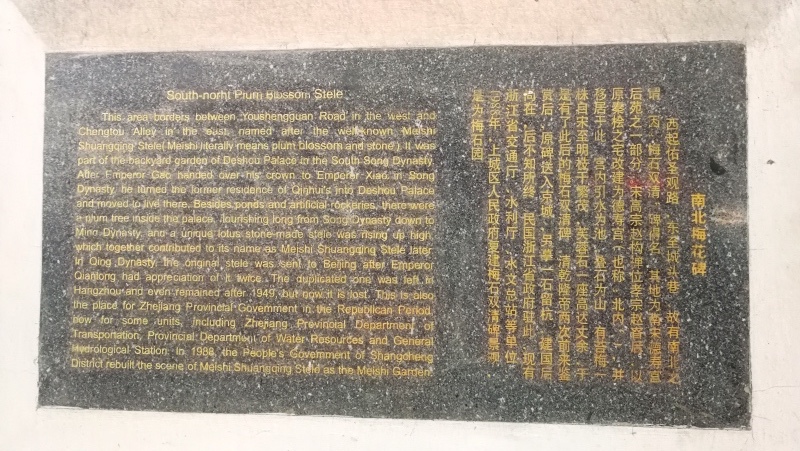 South-norht Plum Blossom Stele
This area borders between Youshengguan Road in the west and
Chengtou Alley in the east, named after the well-known Meishi
Shuangqing Stele( Meishi literally means plum blossom and stone ). It was
part of the backyard garden of Deshou Palace in the South Song Dynasty.
After Emperor Gao handed over his crown to Emperor Xiao in Song
Dynasty, he turned the former residence of Qinhui's into Deshou Palace
and moved to live there. Besides ponds and artificial rockeries, there were
a plum tree inside the palace, flourishing long from Song Dynasty down to
Ming Dynasty, and a unique lotus stone-made stele was rising up high,
which together contributed to its name as Meishi Shuangqing Stele later.
In Qing Dynasty, the original stele was sent to Beijing after Emperor
Qianlong had appreciation of it twice. The duplicated one was left in
Hangzhou and even remained after 1949, but now it is lost. This is also
the place for Zhejiang Provincial Government in the Republican Period,
now for some units, including Zhejiang Provincial Department of
Transportation, Provincial Department of Water Resources and General
Hydrological Station. In 1988, the People's Government of Shangcheng
District rebuilt the scene of Meishi Shuangqing Stele as the Meishi Garden.
南北梅花碑
西起佑圣观路，东至城头巷，故有南北之
谓，因“梅石双清”碑得名。其地为南宋德寿宫
后苑之一部分，宋高宗赵构禅位孝宗赵昚后，以
原秦桧之宅改建为德寿宫（也称“北内”），并
移居于此，宫内引水为池，叠石为山，有苔梅一
株自宋至明桩干繁茂，芙蓉石一座高达丈余，于
是有了此后的梅石双清碑。清乾隆帝两次前来鉴
赏后，原碑送入京城，另摹一石留杭，建国后
尚在，后不知所终。民国浙江省政府驻此，现有
浙江省交通厅、水利厅、水文总站等单位。
1988年，上城区人民政府复建梅石双清碑景观，
是为梅石园。